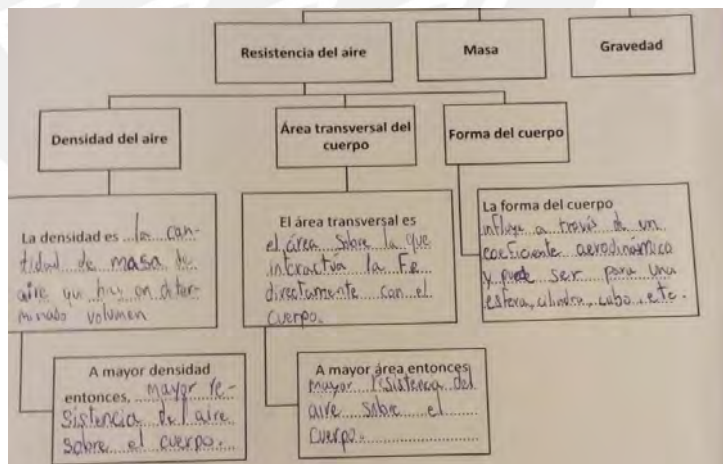 Resistencia del aire
Masa
Gravedad
Densidad del aire
Área transversal del
cuerpo
Forma del cuerpo
La densidad es la can-
tidad de masa de
aire que hay en deter-
minado volumen
El área transversal es
el área sobre la que
interactúa la FR
directamente con el
cuerpo.
La forma del cuerpo
influye a través de un
coeficiente aerodinámico
y puede ser para una
esfera, cilindro, cubo, etc.
A mayor densidad
entonces, mayor re-
sistencia del aire
sobre el cuerpo.
A mayor área entonces
mayor resistencia del
aire sobre el
cuerpo.